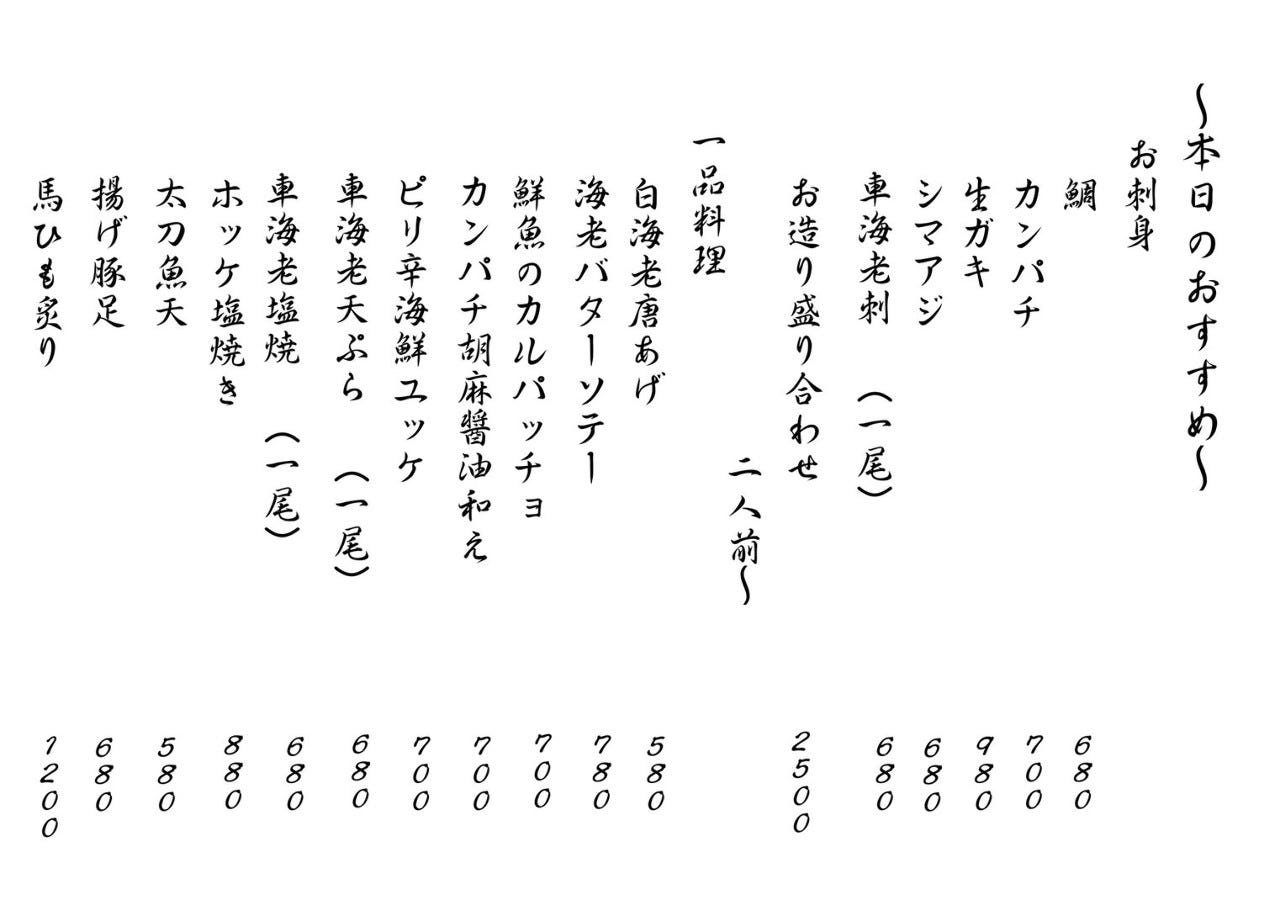 ～本日のおすすめ～
お刺身
鯛 680
カンパチ 700
生ガキ 980
シマアジ 680
車海老刺 (一尾) 680
お造り盛り合わせ 2500
二人前～
一品料理
白海老唐あげ 580
海老バターソテー 780
鮮魚のカルパッチョ 700
カンパチ胡麻醤油和え 700
ピリ辛海鮮ユッケ 700
車海老天ぷら (一尾) 680
車海老塩焼 (一尾) 680
ホッケ塩焼き 880
太刀魚天 580
揚げ豚足 680
馬ひも炙り 1200